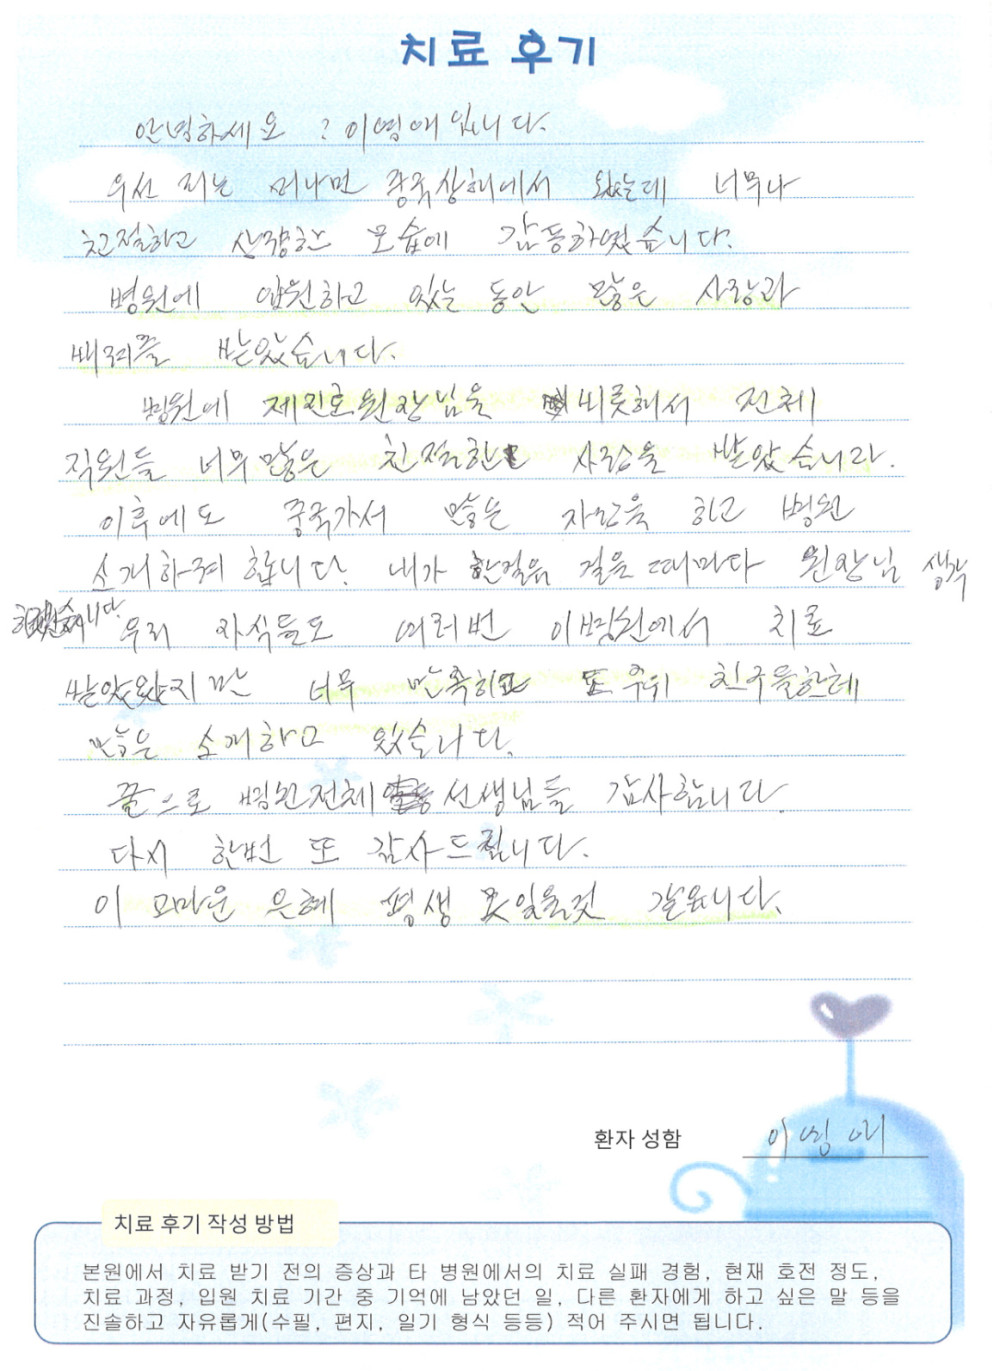 치료 후기
안녕하세요 ? 이영애입니다.
우선 저는 머나먼 중국상해에서 왔는데 너무나
친절하고 상량한 모습에 감동하였습니다.
병원에 입원하고 있는 동안 많은 사랑과
배려를 받았습니다.
병원에 제진호원장님을 비롯해서 전체
직원들 너무많은 친절한 사랑을 받았습니다.
이후에도 중국가서 많은 자랑을 하고 병원
소개하려 합니다. 내가 한걸음 걸을 때마다 원장님 생각
하겠습니다.
우리 자식들도 여러번 이병원에서 치료
받았었지만 너무 만족하고 또 주위 친구들한테
많은 소개하고 있습니다.
끝으로 병원전체 선생님들 감사합니다.
다시 한번 또 감사드립니다.
이 고마운 은혜 평생 못잊을것 같읍니다.
환자 성함 이영애
치료 후기 작성 방법
본원에서 치료 받기 전의 증상과 타 병원에서의 치료 실패 경험, 현재 호전 정도,
치료 과정, 입원 치료 기간 중 기억에 남았던 일, 다른 환자에게 하고 싶은 말 등을
진솔하고 자유롭게(수필, 편지, 일기 형식 등등) 적어 주시면 됩니다.